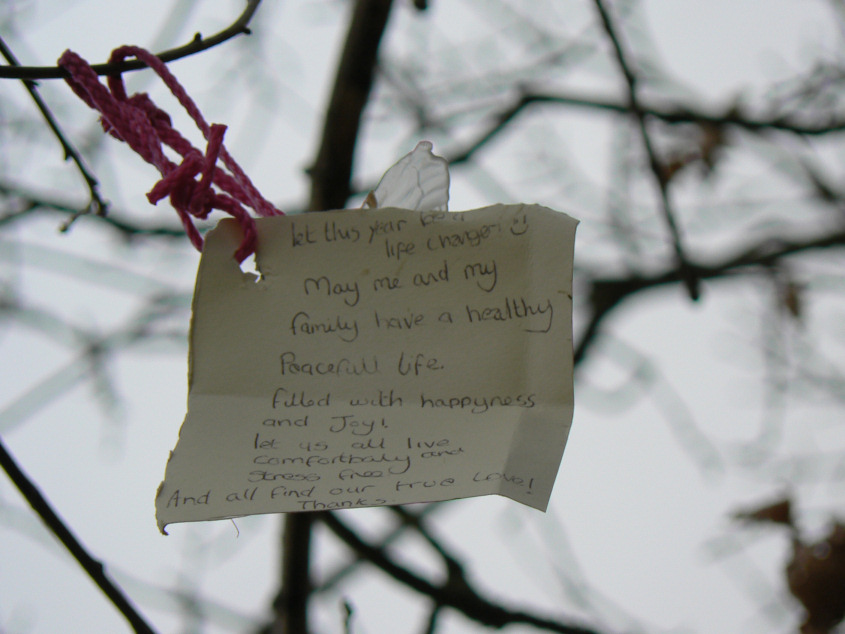 let this year be a
life changer :)
May me and my
family have a healthy
Peacefull life.
filled with happyness
and Joy!
let us all live
comfortbaly and
stress free
And all find our true love!
Thanks.